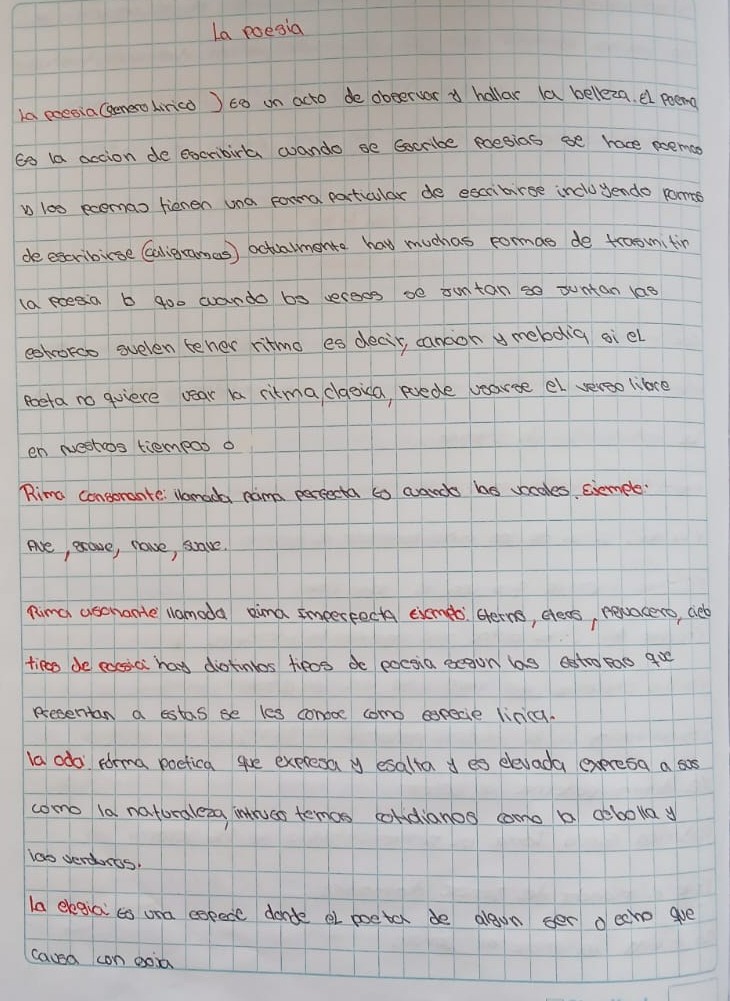 La poesia
La poesia (Genero Lirico) Es un acto de observar y hallar la belleza. el poema
Es la accion de escribirla cuando se Escribe poesias se hace poemas
y los poemas tienen una forma particular de escribirse incluyendo formas
de escribirse (caligramas) actualmente hay muchas formas de trasmitir
la poesia b que cuando los versos se juntan se juntan las
estrofas suelen tener ritmo es decir, cancion y melodia si el
poeta no quiere usar la ritma clasica, puede usarse el verso libre
en nuestros tiempos o
Rima consonante: llamada rima perfecta es cuando las vocales. Ejemplo:
Ave, grave, nave, suave.
Rima asonante llamada rima imperfecta ejemplo: eterno, cielo
tipos de poesia hay distintos tipos de poesia segun las estrofas que
presentan a estas se les conoce como especie lirica.
la oda: forma poetica que expresa y esalta y es elevada expresa a sus
como la naturaleza, temas cotidianos como la cebolla y
las verduras.
la elegia: es una especie donde el poeta de algun ser o echo que
causa con